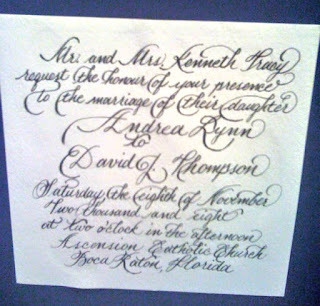 Mr. and Mrs. Kenneth Tracy
request the honour of your presence
to the marriage of their daughter
Andrea Lynn
to
David J. Thompson
Saturday, the eighth of November
Two thousand and eight
at two o'clock in the afternoon
Ascension Catholic Church
Boca Raton, Florida